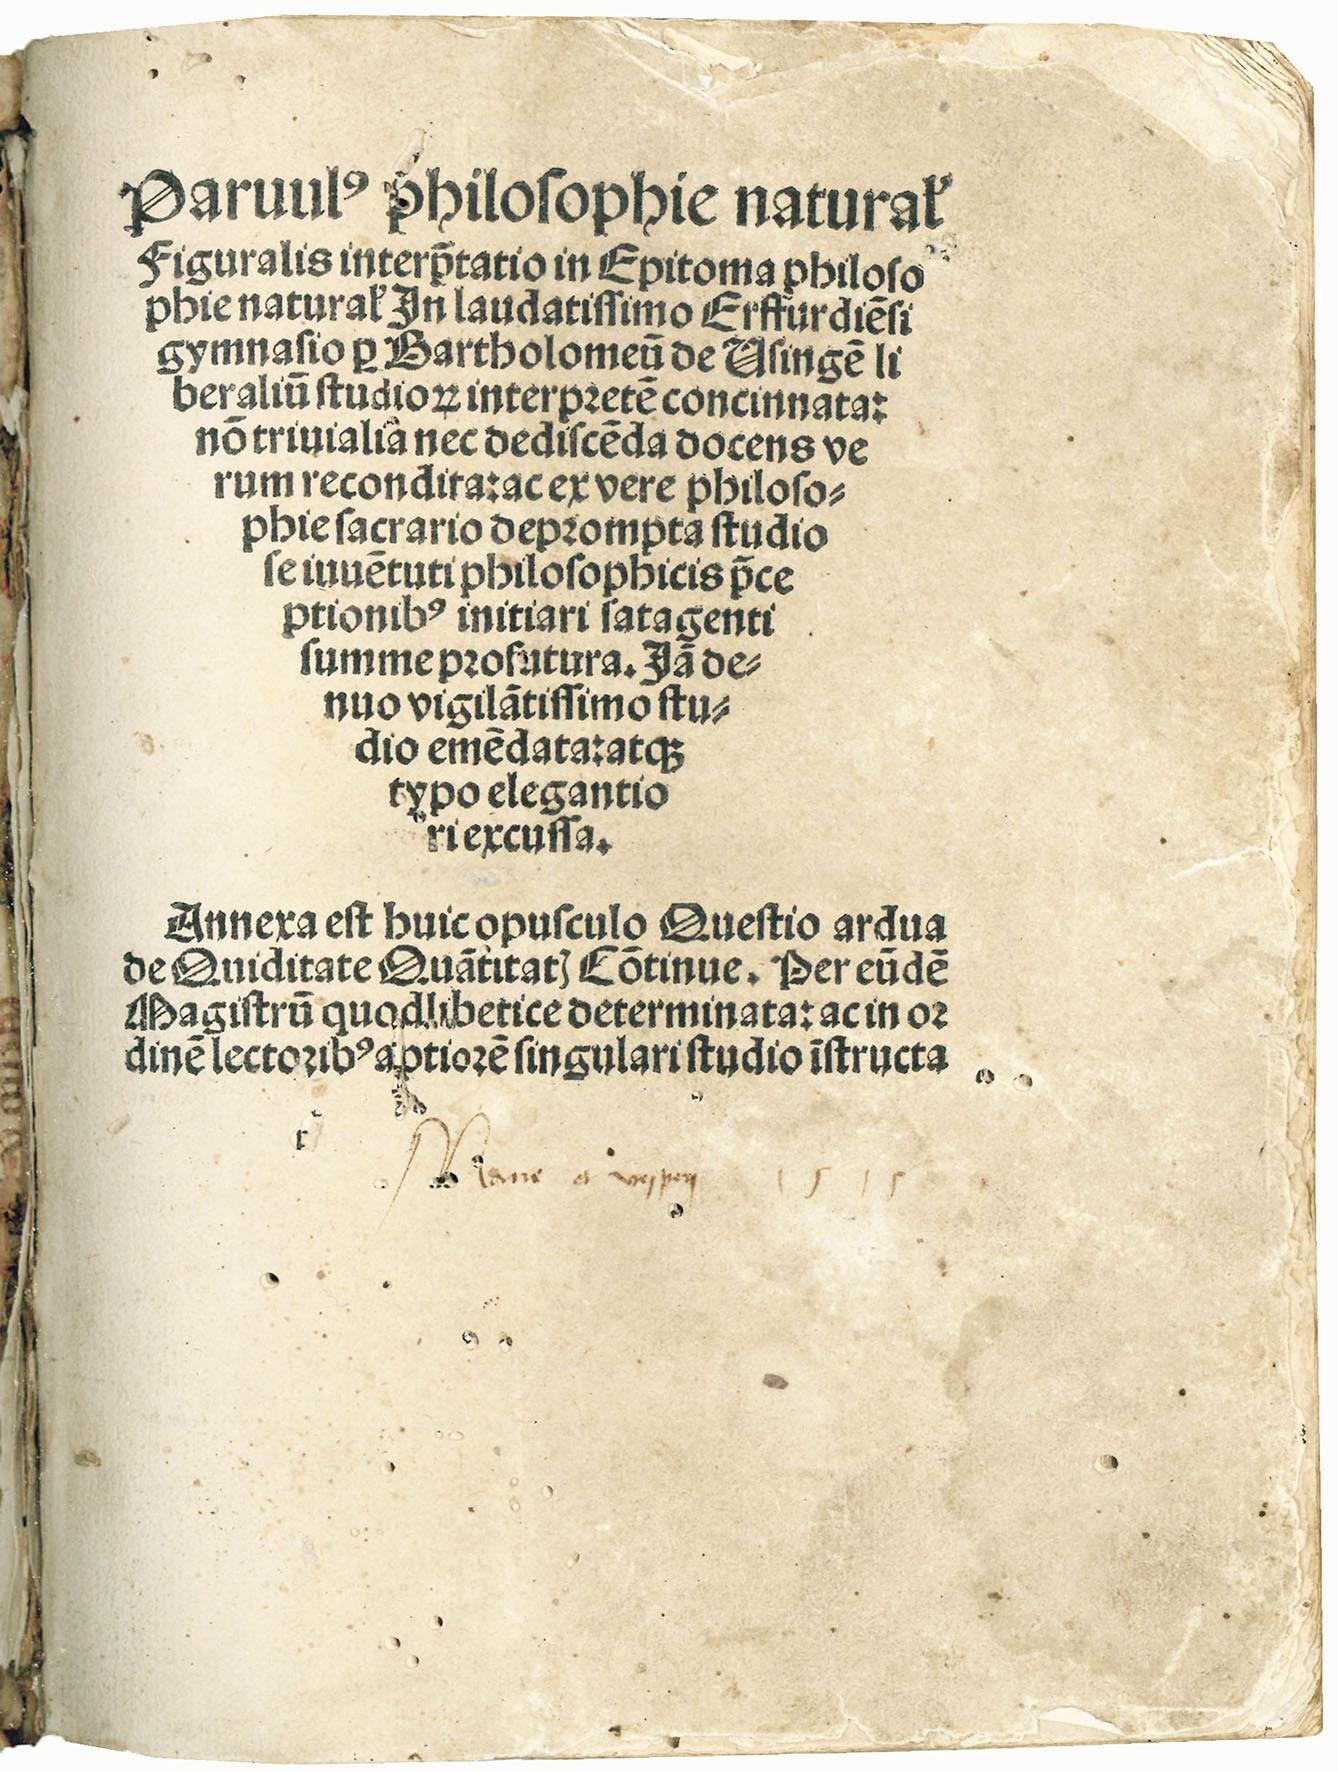 Paruulꝰ p̄hilosophie naturaƚ
Figuralis interp̄tatio in Epitoma philoso
phie naturaƚ In laudatissimo Erffurdiēsi
gymnasio ꝑ Bartholomeū de Usingē li
beraliū studioꝝ interpretē concinnata:
nō triuialia nec dediscēda docens ve
rum recondita: ac ex vere philoso⸗
phie sacrario deprompta studio
se iuuētuti philosophicis p̄ce
ptionibꝰ initiari satagenti
summe profutura. Iā de⸗
nuo vigilātissimo stu⸗
dio emēdata: atqꝫ
typo elegantio
ri excussa.
Annexa est huic opusculo Questio ardua
de Quiditate Quātitatꝭ Cōtinue. Per eūdē
Magistrū quodlibetice determinata: ac in or
dinē lectoribꝰ aptiorē singulari studio īstructa
1515